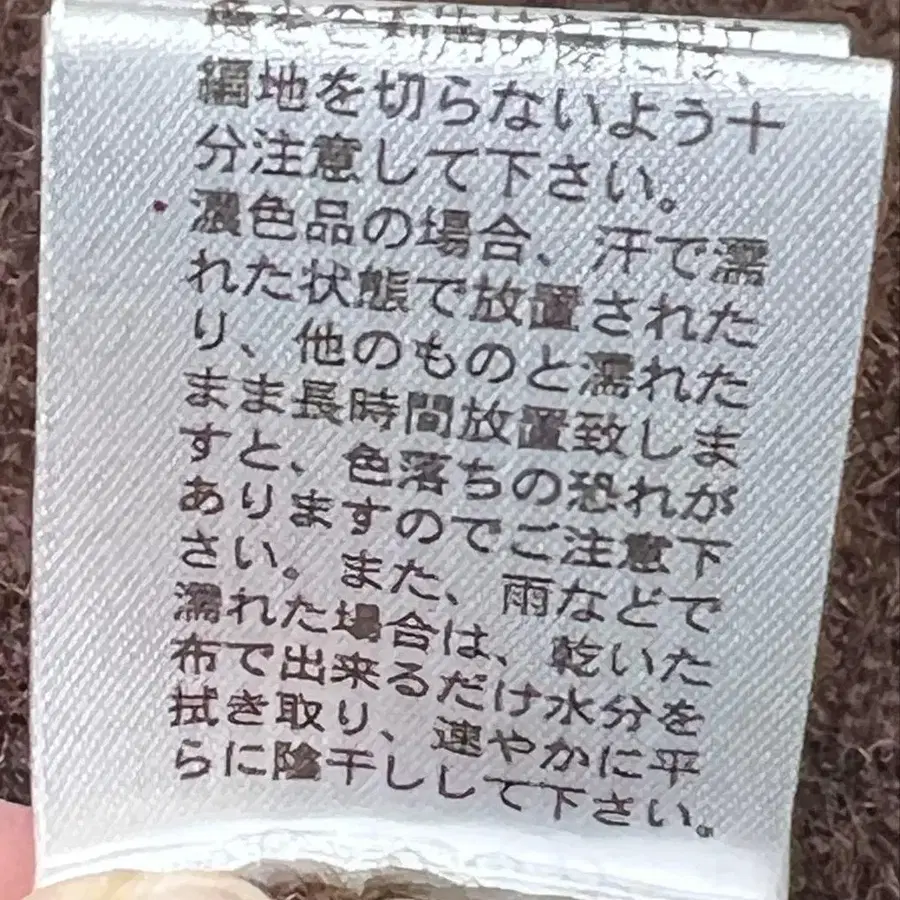 編地を切らないよう十
分注意して下さい。
濃色品の場合、汗で濡
れた状態で放置された
り、他のものと濡れたた
ままま長時間放置致しま
すと、色落ちの恐れが
ありますのでご注意下
さい。また、雨などで
濡れた場合は、乾いた
布で出来るだけ水分を
拭き取り、速やかに平
らに陰干しして下さい。